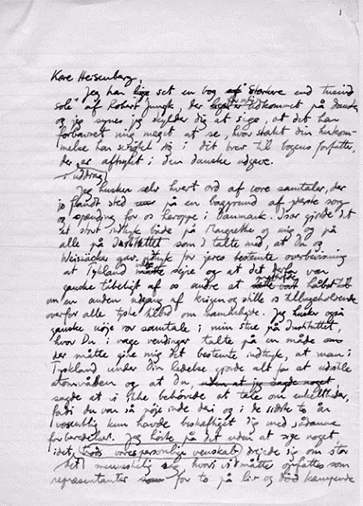 1
Kære Heisenberg,
Jeg har lige set en bog "Stærkere end tusind
sole" af Robert Jungk, der lige er udkommet på dansk
og jeg synes jeg skylder dig at sige, at det har
forbavset mig meget at se, hvor stærkt din hukom-
melse har sviktet dig i dit brev til bogens forfatter,
der er aftrykt i den danske udgave.
uddrag
Jeg husker selv hvert ord af vore samtaler, der
fandt sted på en baggrund af sorg
og spænding for os herhjemme i Danmark. Især gjorde det
et stort indtryk både på Margrethe og mig og på
alle på Institutet som I talte med, at Du og
Weizsäcker gav udtryk for jeres bestemte overbevisning
at Tyskland måtte sejre og at det derfor var
ganske tåbeligt af os andre at håbet
om en anden udgang af krigen og stille os tilbageholdende
overfor alle tyske tilbud om samarbejde. Jeg husker også
ganske nøje vor samtale i min stue på Institutet,
hvor Du i vage vendinger talte på en måde
der måtte give mig det bestemte indtryk, at man i
Tyskland under Din ledelse gjorde alt for at udvikle
atomvåben og at Du,
sagde at vi ikke behøvede at tale om enkeltheder,
fordi du var så nøje inde deri og i de sidste to år
havde beskæftiget dig med sådanne
forberedelser. Jeg hørte på det uden at sige noget
idet, trods vores personlige venskab, drejede sig om stor
sag, hvori vi måtte opfattes som
repræsentanter for to på liv og død kæmpende